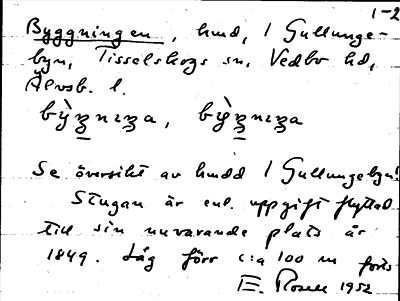 1-2
Byggningen, hmd, / Gullunge-
byn, Tisselskogs sn, Vedbo hd,
Älvsb. l.
Se översikt av hmdd / Gullungebyn!
Stugan är enl. uppgift flyttad
till sin nuvarande plats år
1849. Låg förr c:a 100 m
E. Rosell 1952